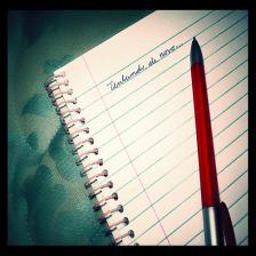 Tentando de novo...